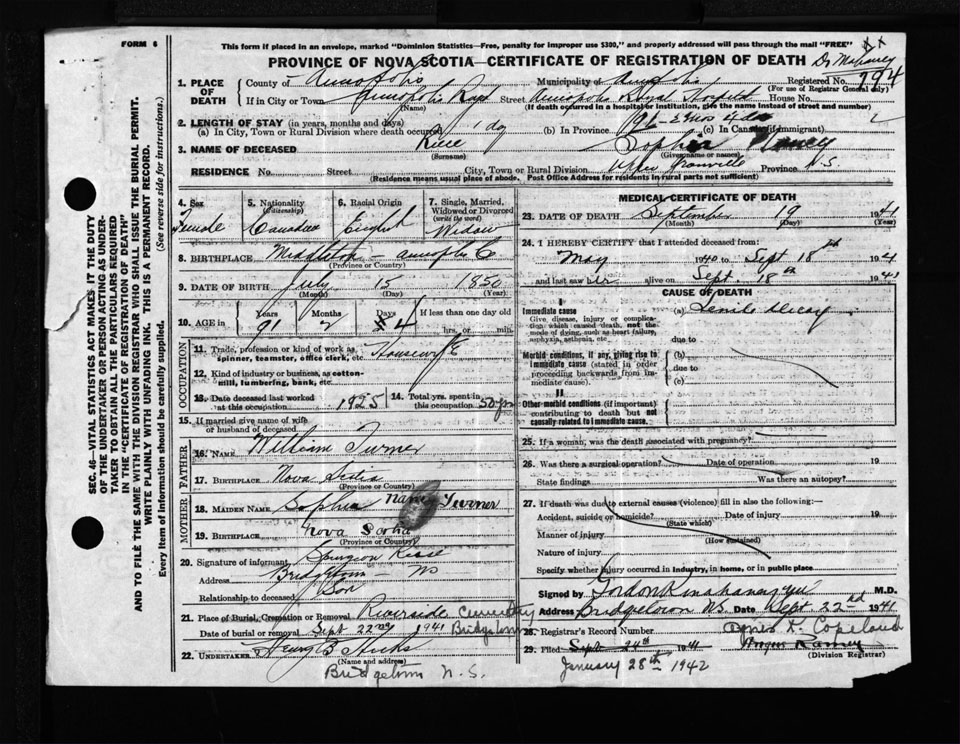 FORM 6
This form if placed in an envelope, marked "Dominion Statistics—Free, penalty for improper use $300," and properly addressed will pass through the mail "FREE"
PROVINCE OF NOVA SCOTIA—CERTIFICATE OF REGISTRATION OF DEATH
1. PLACE OF DEATH
County of Annapolis Municipality of Annapolis Registered No. 794
(For use of Registrar General only)
If in City or Town Annapolis Royal Street Annapolis Royal Hospital House No.
(Name) (If death occurred in a hospital or institution, give the name instead of street and number)
2. LENGTH OF STAY (in years, months and days)
(a) In City, Town or Rural Division where death occurred 1 day (b) In Province (c) In Canada (if immigrant)
3. NAME OF DECEASED Sophia Nancy
(Surname) (Given name or names)
RESIDENCE No. Street City, Town or Rural Division Upper Granville Province N.S.
(Residence means usual place of abode. Post Office Address for residents in rural parts not sufficient)
4. Sex Female
5. Nationality (Citizenship) Canadian
6. Racial Origin English
7. Single, Married, Widowed or Divorced (write the word) Widow
8. BIRTHPLACE Annapolis Co
(Province or Country)
9. DATE OF BIRTH July 15 1850
(Month) (Day) (Year)
10. AGE in Years Months Days If less than one day old
91 2 4 hrs. or min.
OCCUPATION
11. Trade, profession or kind of work as spinner, teamster, office clerk, etc. Housewife
12. Kind of industry or business, as cotton-mill, lumbering, bank, etc.
13. Date deceased last worked at this occupation 1925
14. Total yrs. spent in this occupation 50 yrs
15. If married give name of wife or husband of deceased
FATHER
16. NAME William Turner
17. BIRTHPLACE Nova Scotia
(Province or Country)
MOTHER
18. MAIDEN NAME Sophia Nancy Turner
19. BIRTHPLACE Nova Scotia
(Province or Country)
20. Signature of informant Spurgeon
Address Bridgetown NS
Relationship to deceased Son
21. Place of Burial, Cremation or Removal Riverside Cemetery
Date of burial or removal Sept 22nd 1941 Bridgetown
22. UNDERTAKER Henry B Hicks
(Name and address)
Bridgetown N.S.
MEDICAL CERTIFICATE OF DEATH
23. DATE OF DEATH September 19 1941
(Month) (Day) (Year)
24. I HEREBY CERTIFY that I attended deceased from:
May 1940 to Sept 18th 1941
and last saw her alive on Sept. 18th 1941
CAUSE OF DEATH
I
Immediate cause
Give disease, injury or complication which caused death, not the mode of dying, such as heart failure, asphyxia, asthenia, etc.
(a) Senile Decay
due to
Morbid conditions, if any, giving rise to immediate cause (stated in order proceeding backwards from immediate cause).
(b)
due to
(c)
II
Other morbid conditions (if important) contributing to death but not causally related to immediate cause.
25. If a woman, was the death associated with pregnancy?
26. Was there a surgical operation? Date of operation 19
State findings Was there an autopsy?
27. If death was due to external causes (violence) fill in also the following:—
Accident, suicide or homicide? Date of injury 19
(State which)
Manner of injury
(How sustained)
Nature of injury
Specify whether injury occurred in industry, in home, or in public place
Signed by M.D.
Address Bridgetown NS Date Sept. 22nd 1941
28. Registrar's Record Number Agnes L. Copeland
29. Filed Sept 24th 1941 Ramey
(Division Registrar)
January 28th 1942
SEC. 46—VITAL STATISTICS ACT MAKES IT THE DUTY
OF THE UNDERTAKER OR PERSON ACTING AS UNDER-
TAKER TO OBTAIN ALL THE PARTICULARS REQUIRED
IN THE "CERTIFICATE OF REGISTRATION OF DEATH"
AND TO FILE THE SAME WITH THE DIVISION REGISTRAR WHO SHALL ISSUE THE BURIAL PERMIT.
WRITE PLAINLY WITH UNFADING INK. THIS IS A PERMANENT RECORD.
Every item of information should be carefully supplied. (See reverse side for instructions.)